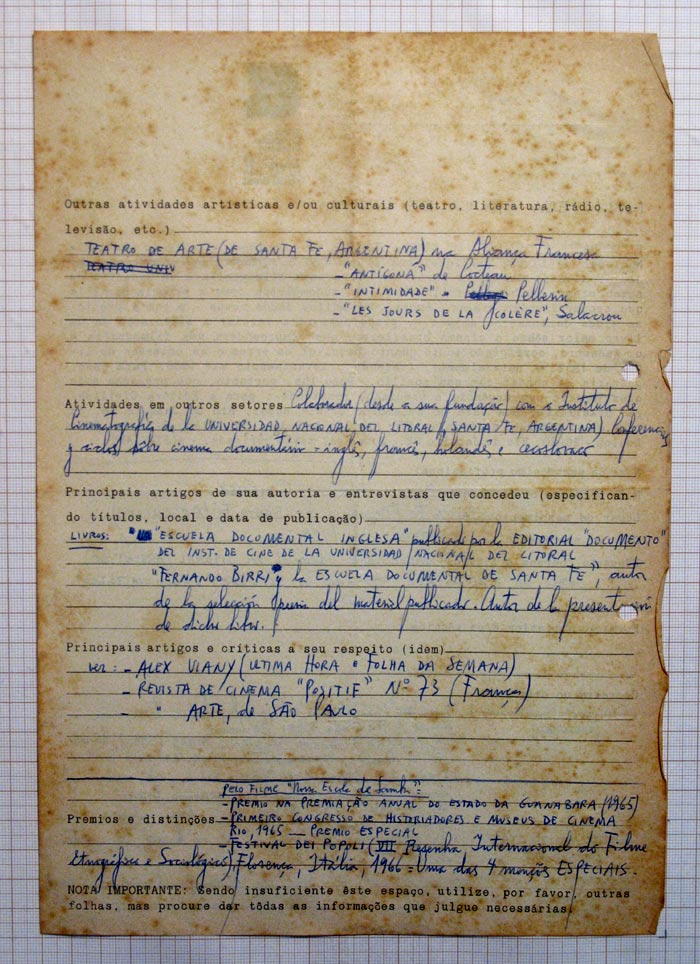 Outras atividades artísticas e/ou culturais (teatro, literatura, rádio, te-
levisão, etc.)
TEATRO DE ARTE (DE SANTA FE, ARGENTINA) na Aliança Francesa
TEATRO UNIV
- "ANTÍGONA" de Cocteau
- "INTIMIDADE" " Pellerin
- "LES JOURS DE LA COLÈRE", Salacrou
Atividades em outros setores Colaborador (desde a sua fundação) com o Instituto de
Cinematografía de la UNIVERSIDAD NACIONAL DEL LITORAL (SANTA FE, ARGENTINA) Conferencias
y ciclos sôbre cinema documentário - inglês, francês, holandês e
Principais artigos de sua autoria e entrevistas que concedeu (especifican-
do títulos, local e data de publicação)
LIVROS: "ESCUELA DOCUMENTAL INGLESA" publicado por la EDITORIAL "DOCUMENTO"
DEL INST. DE CINE DE LA UNIVERSIDAD NACIONAL DEL LITORAL
"FERNANDO BIRRI y la ESCUELA DOCUMENTAL DE SANTA FE", autor
de la selección del material publicado. Autor de la presentación
de dicho libro.
Principais artigos e críticas a seu respeito (idem)
ver: - ALEX VIANY (ULTIMA HORA e FOLHA DA SEMANA)
- REVISTA DE CINEMA "POZITIF" Nº 73 (França)
- " ARTE, de SÃO PAULO
PELO FILME "Nossa Escola de Samba":
- PREMIO NA PREMIAÇÃO ANUAL DO ESTADO DA GUANABARA (1965)
Premios e distinções - PRIMEIRO CONGRESSO DE HISTORIADORES E MUSEUS DE CINEMA
RIO, 1965 — PREMIO ESPECIAL
- FESTIVAL DEI POPOLI (VII Resenha Internacional do Filme
Etnográfico e Sociológico), Florença, Itália, 1966 = Uma das 4 menções ESPECIAIS.
NOTA IMPORTANTE: Sendo insuficiente êste espaço, utilize, por favor, outras
folhas, mas procure dar tôdas as informações que julgue necessárias.